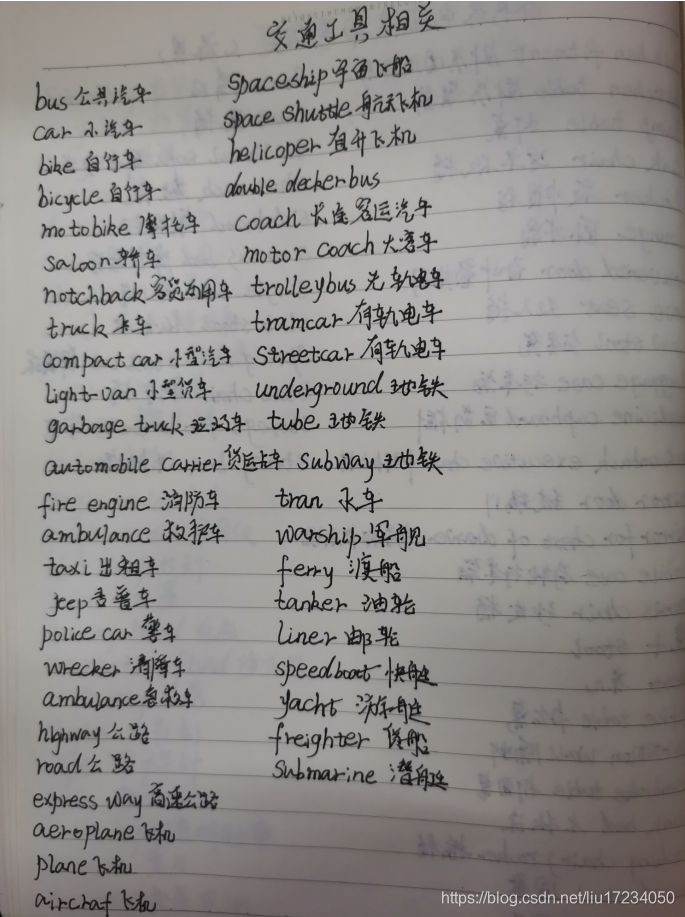 交通工具相关
bus 公共汽车
car 小汽车
bike 自行车
bicycle 自行车
motobike 摩托车
saloon 轿车
notchback 客货两用车
truck 卡车
compact car 小型汽车
light-van 小型货车
garbage truck 垃圾车
automobile carrier 货运卡车
fire engine 消防车
ambulance 救护车
taxi 出租车
jeep 吉普车
police car 警车
wrecker 清障车
ambulance 急救车
highway 公路
road 公路
express way 高速公路
aeroplane 飞机
plane 飞机
aircraf 飞机
spaceship 宇宙飞船
space shuttle 航天飞机
helicoper 直升飞机
double decker bus
coach 长途客运汽车
motor coach 大客车
trolleybus 无轨电车
tramcar 有轨电车
streetcar 有轨电车
underground 地铁
tube 地铁
subway 地铁
tran 火车
warship 军舰
ferry 渡船
tanker 油轮
liner 邮轮
speedboat 快艇
yacht 游艇
freighter 货船
submarine 潜艇
https://blog.csdn.net/liu17234050